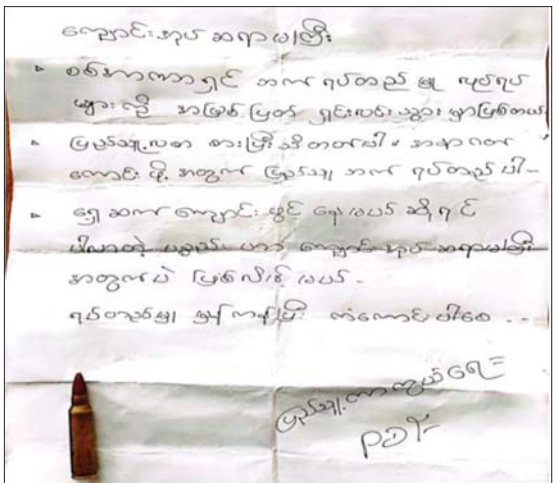 ကျောင်းအုပ် ဆရာမကြီး
စစ်အာဏာရှင် ဘက် ရပ်တည် မှု လုပ်ရပ်
များ ကို အမြစ်ပြတ် ရှင်းလင်း သွား မှာဖြစ်တယ်
ပြည်သူ့လစာ စားပြီး သိ တတ်ပါ။ အနာဂတ်
ကောင်း ဖို့ အတွက် ပြည်သူ ဘက် ရပ်တည် ပါ-
ရှေ့ ဆက် ကျောင်း ဖွင့် နေမယ် ဆိုရင်
ပါလာတဲ့ ပစ္စည်း ဟာ ကျောင်းအုပ် ဆရာမကြီး
အတွက်ပဲ ဖြစ်လိမ့် မယ်-
ရပ်တည်မှု မှန်ကန်ပြီး ကံကောင်း ပါစေ . .
ပြည်သူ့ကာကွယ်ရေး